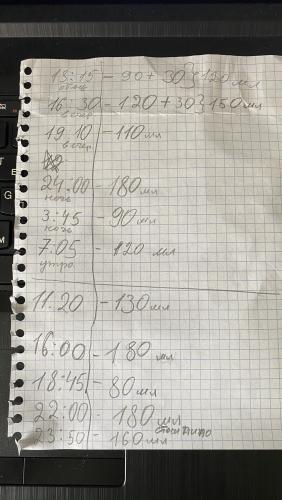 13:15 - 90 + 30 } 120 мл
16:30 - 120 + 30 } 150 мл
вечер
19.10 - 110 мл
вечер
24:00 - 180 мл
ночь
3:45 - 90 мл
ночь
7.05 - 120 мл
утро
11.20 - 130 мл
16:00 - 180 мл
18:45 - 80 мл
22:00 - 180 мл
23:50 - 160 мл